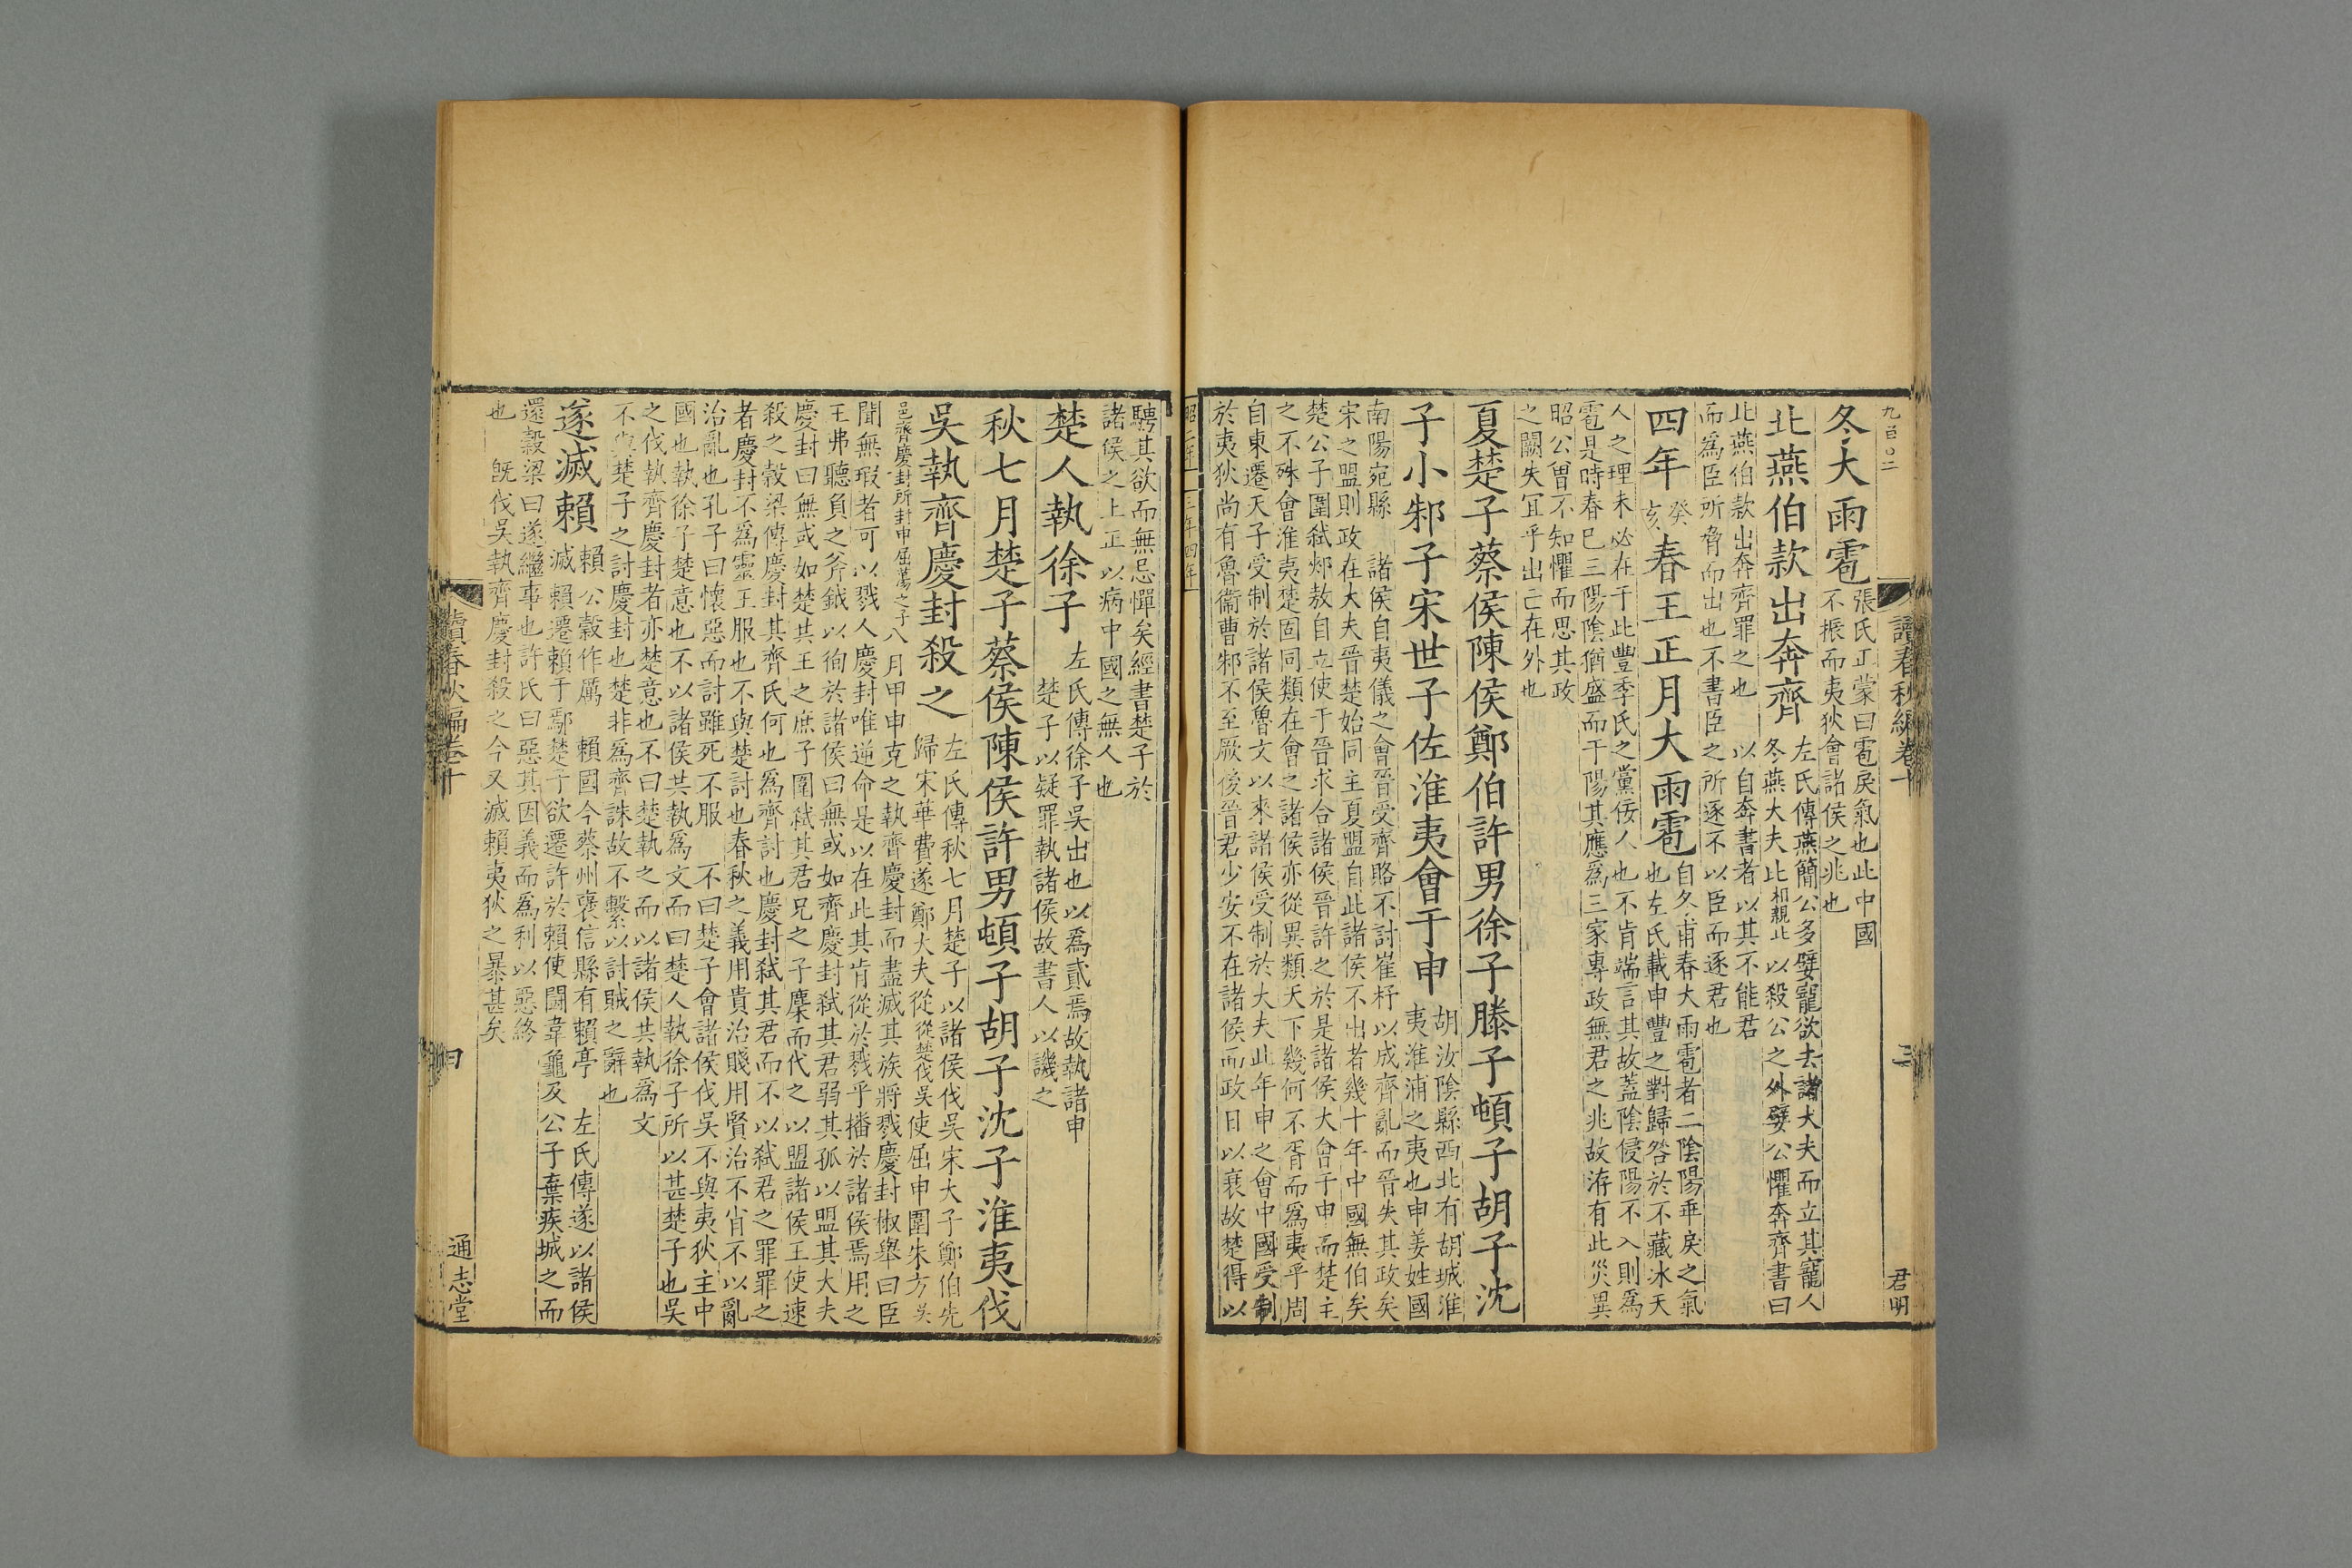 九百〇二
讀春秋編卷十
三
君明
冬大雨雹
張氏正蒙曰雹戾氣也此中國
不振而夷狄會諸侯之兆也
北燕伯款出奔齊
左氏傳燕簡公多嬖寵欲去諸大夫而立其寵人
冬燕大夫比相親比以殺公之外嬖公懼奔齊書曰
北燕伯款出奔齊罪之也 以自奔書者以其不能君
而爲臣所脅而出也不書臣之所逐不以臣而逐君也
四年癸亥春王正月大雨雹
自冬甫春大雨雹者二陰陽乖戾之氣
也左氏載申豐之對歸咎於不藏冰夫
人之理未必在于此豐季氏之黨佞人也不肯端言其故蓋陰侵陽不入則爲
雹是時春巳三陽陰猶盛而干陽其應爲三家專政無君之兆故洊有此災異
昭公曽不知懼而思其政
之闕失冝乎出亡在外也
夏楚子蔡侯陳侯鄭伯許男徐子滕子頓子胡子沈
子小邾子宋世子佐淮夷會于申
胡汝陰縣西北有胡城淮
夷淮浦之夷也申姜姓國
南陽宛縣 諸侯自夷儀之會晉受齊賂不討崔杼以成齊亂而晉失其政矣
宋之盟則政在大夫晉楚始同主夏盟自此諸侯不出者幾十年中國無伯矣
楚公子圍弑郟敖自立使于晉求合諸侯晉許之於是諸侯大會于申而楚主
之不殊會淮夷楚固同類在會之諸侯亦從異類天下幾何不胥而爲夷乎周
自東遷天子受制於諸侯魯文以來諸侯受制於大夫此年申之會中國受制
於夷狄尚有魯衞曹邾不至厥後晉君少安不在諸侯而政日以衰故楚得以
昭三年 三年四年
聘其欲而無忌憚矣經書楚子於
諸侯之上正以病中國之無人也
楚人執徐子
左氏傳徐子吳出也以爲貳焉故執諸申
楚子以疑罪執諸侯故書人以譏之
秋七月楚子蔡侯陳侯許男頓子胡子沈子淮夷伐
吳執齊慶封殺之
左氏傳秋七月楚子以諸侯伐吳宋大子鄭伯先
歸宋華費遂鄭大夫從從楚伐吳使屈申圍朱方吳
邑齊慶封所封申屈蕩之子八月甲申克之執齊慶封而盡滅其族將戮慶封椒舉曰臣
聞無瑕者可以戮人慶封唯逆命是以在此其肯從於戮乎播於諸侯焉用之
王弗聽負之斧鉞以徇於諸侯曰無或如齊慶封弑其君弱其孤以盟其大夫
慶封曰無或如楚共王之庶子圍弑其君兄之子麇而代之以盟諸侯王使速
殺之穀梁傳慶封其齊氏何也爲齊討也慶封弑其君而不以弑君之罪罪之
者慶封不爲靈王服也不與楚討也春秋之義用貴治賤用賢治不肖不以亂
治亂也孔子曰懷惡而討雖死不服 不曰楚子會諸侯伐吳不與夷狄主中
國也執徐子楚意也不以諸侯共執爲文而曰楚人執徐子所以甚楚子也吳
之伐執齊慶封者亦楚意也不曰楚執之而以諸侯共執爲文
不與楚子之討慶封也楚非爲齊誅故不繫以討賊之辭也
遂滅賴
賴公穀作厲 賴國今蔡州褒信縣有賴亭 左氏傳遂以諸侯
滅賴遷賴于鄢楚子欲遷許於賴使鬬韋龜及公子棄疾城之而
還穀梁曰遂繼事也許氏曰惡其因義而爲利以惡終
也 旣伐吳執齊慶封殺之今又滅賴夷狄之暴甚矣
讀春秋編卷十
通志堂